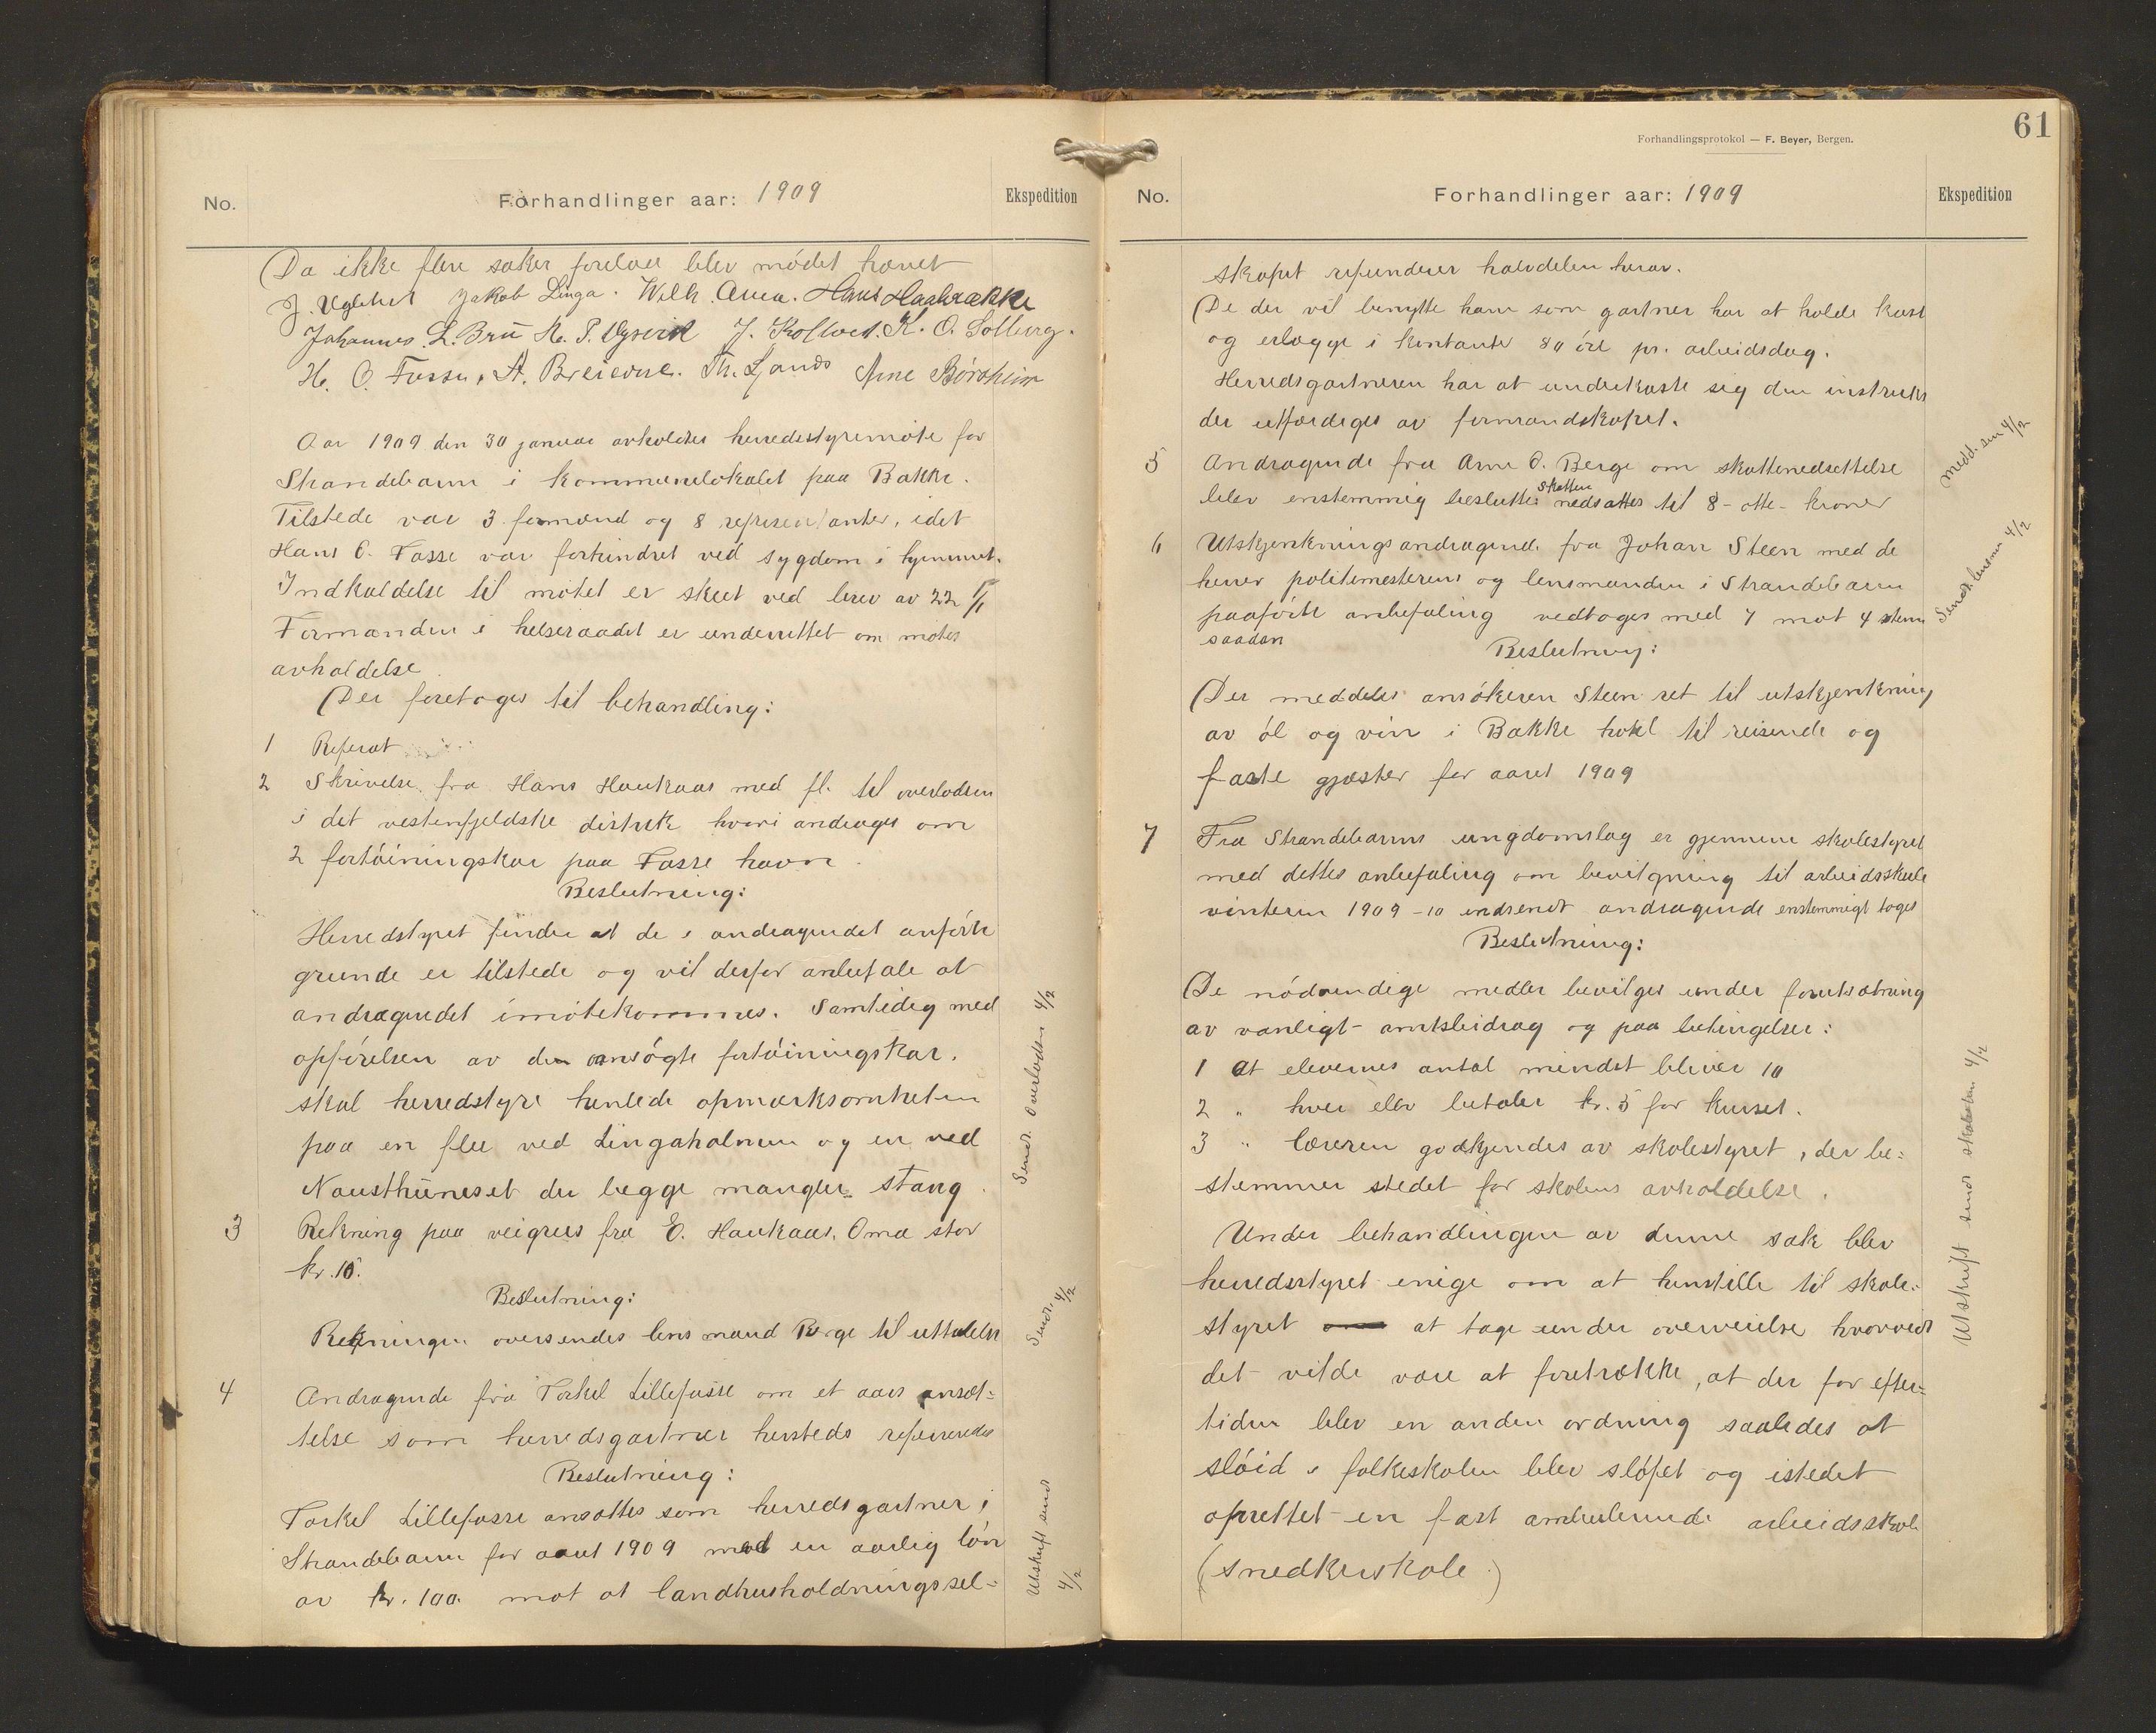 No.
Forhandlinger aar: 1909
Ekspedition
Da ikke flere saker forelaa blev mødet hævet
Jakob Linga. Wilh. Hans Haabrække
Johannes L. Bru J. Koltved. K. O. Solberg.
H. O. Fosse, A. Th. Arne Børsheim
Aar 1909 den 30 januar avholdtes herredsstyremøte for
Strandebarm i kommunelokalet paa Bakke.
Tilstede var 3 formænd og 8 representanter, idet
Hans O. Fosse var forhindret ved sygdom i hjemmet.
Indkaldelse til møtet er skeet ved brev av 22/1
Formanden i helseraadet er underrettet om møtes
avholdelse
Der foretoges til behandling:
1 Referat
2 Skrivelse fra Hans Haukaas med fl. til overlodsen
i det vestenfjeldske distrikt hvori andrages om
2 fortøiningskar paa Fosse havn.
Beslutning:
Herredstyret finder at de i andragendet anførte
grunde er tilstede og vil derfor anbefale at
andragendet imøtekommes. Samtidig med
opførelsen av de ansøgte fortøiningskar.
skal herredstyre henlede opmærksomheten
paa en flu ved Lingaholmen og en ved
Nausthuneset der begge mangler stang.
3 Rekning paa veigrus fra O. Haukaas, Oma stor
kr. 10.
Beslutning:
Rekningen oversendes lensmand Berge til uttalelse
4 Andragende fra Torkel Lillefosse om et aars ansæt-
telse som herredsgartner hersteds refereredes
Beslutning:
Torkel Lillefosse ansattes som herredsgartner i
Strandebarm for aaret 1909 med en aarlig løn
av kr. 100. mot at landhusholdningssel-
Sendt overlodsen 4/2
Sendt 4/2
Utskrift sendt
4/2
61
Forhandlingsprotokol — F. Beyer, Bergen.
No.
Forhandlinger aar: 1909
Ekspedition
skapet refunderer halvdelen herav.
De der vil benytte ham som gartner har at holde kost
og erlægge i kontanter 80 øre pr. arbeidsdag.
Herredsgartneren har at underkaste sig den instruks
der utfærdiges av formandskapet.
5 Andragende fra Arne O. Berge om skattenedsettelse
skatten
blev enstemmig besluttet nedsattes til 8 - otte - kroner
6 Utskjenkningsandragende fra Johan Steen med de
herrer politimesterens og lensmanden i Strandebarm
paaførte anbefaling vedtoges med 7 mot 4 stem
saadan
Beslutning:
Der meddeles ansøkeren Steen ret til utskjenkning
av øl og vin i Bakke hotel til reisende og
faste gjæster for aaret 1909
7 Fra Strandebarms ungdomslag er gjennem skolestyret
med dettes anbefaling om bevilgning til arbeidsskule
vinteren 1909-10 indsendt andragende enstemmigt toges
Beslutning:
De nødvendige medler bevilges under forutsætning
av vanligt amtsbidrag og paa betingelser:
1 at elevernes antal mindst bliver 10
2 " hver elev betaler kr. 5 for kurset.
3 " læreren godkjendes av skolestyret, der be-
stemmer stedet for skolens avholdelse.
Under behandlingen av denne sak blev
herredsstyret enige om at henstille til skole-
styret at tage under overveielse hvorvidt
det vilde være at foretrække, at der for efter-
tiden blev en anden ordning saaledes at
sløid i folkeskolen blev sløfet og istedet
oprettet en fast ambulerende arbeidsskole
(snedkerskole)
medd. sen 4/2
Sendt lensmn 4/2
Utskrift sendt skolestn 4/2